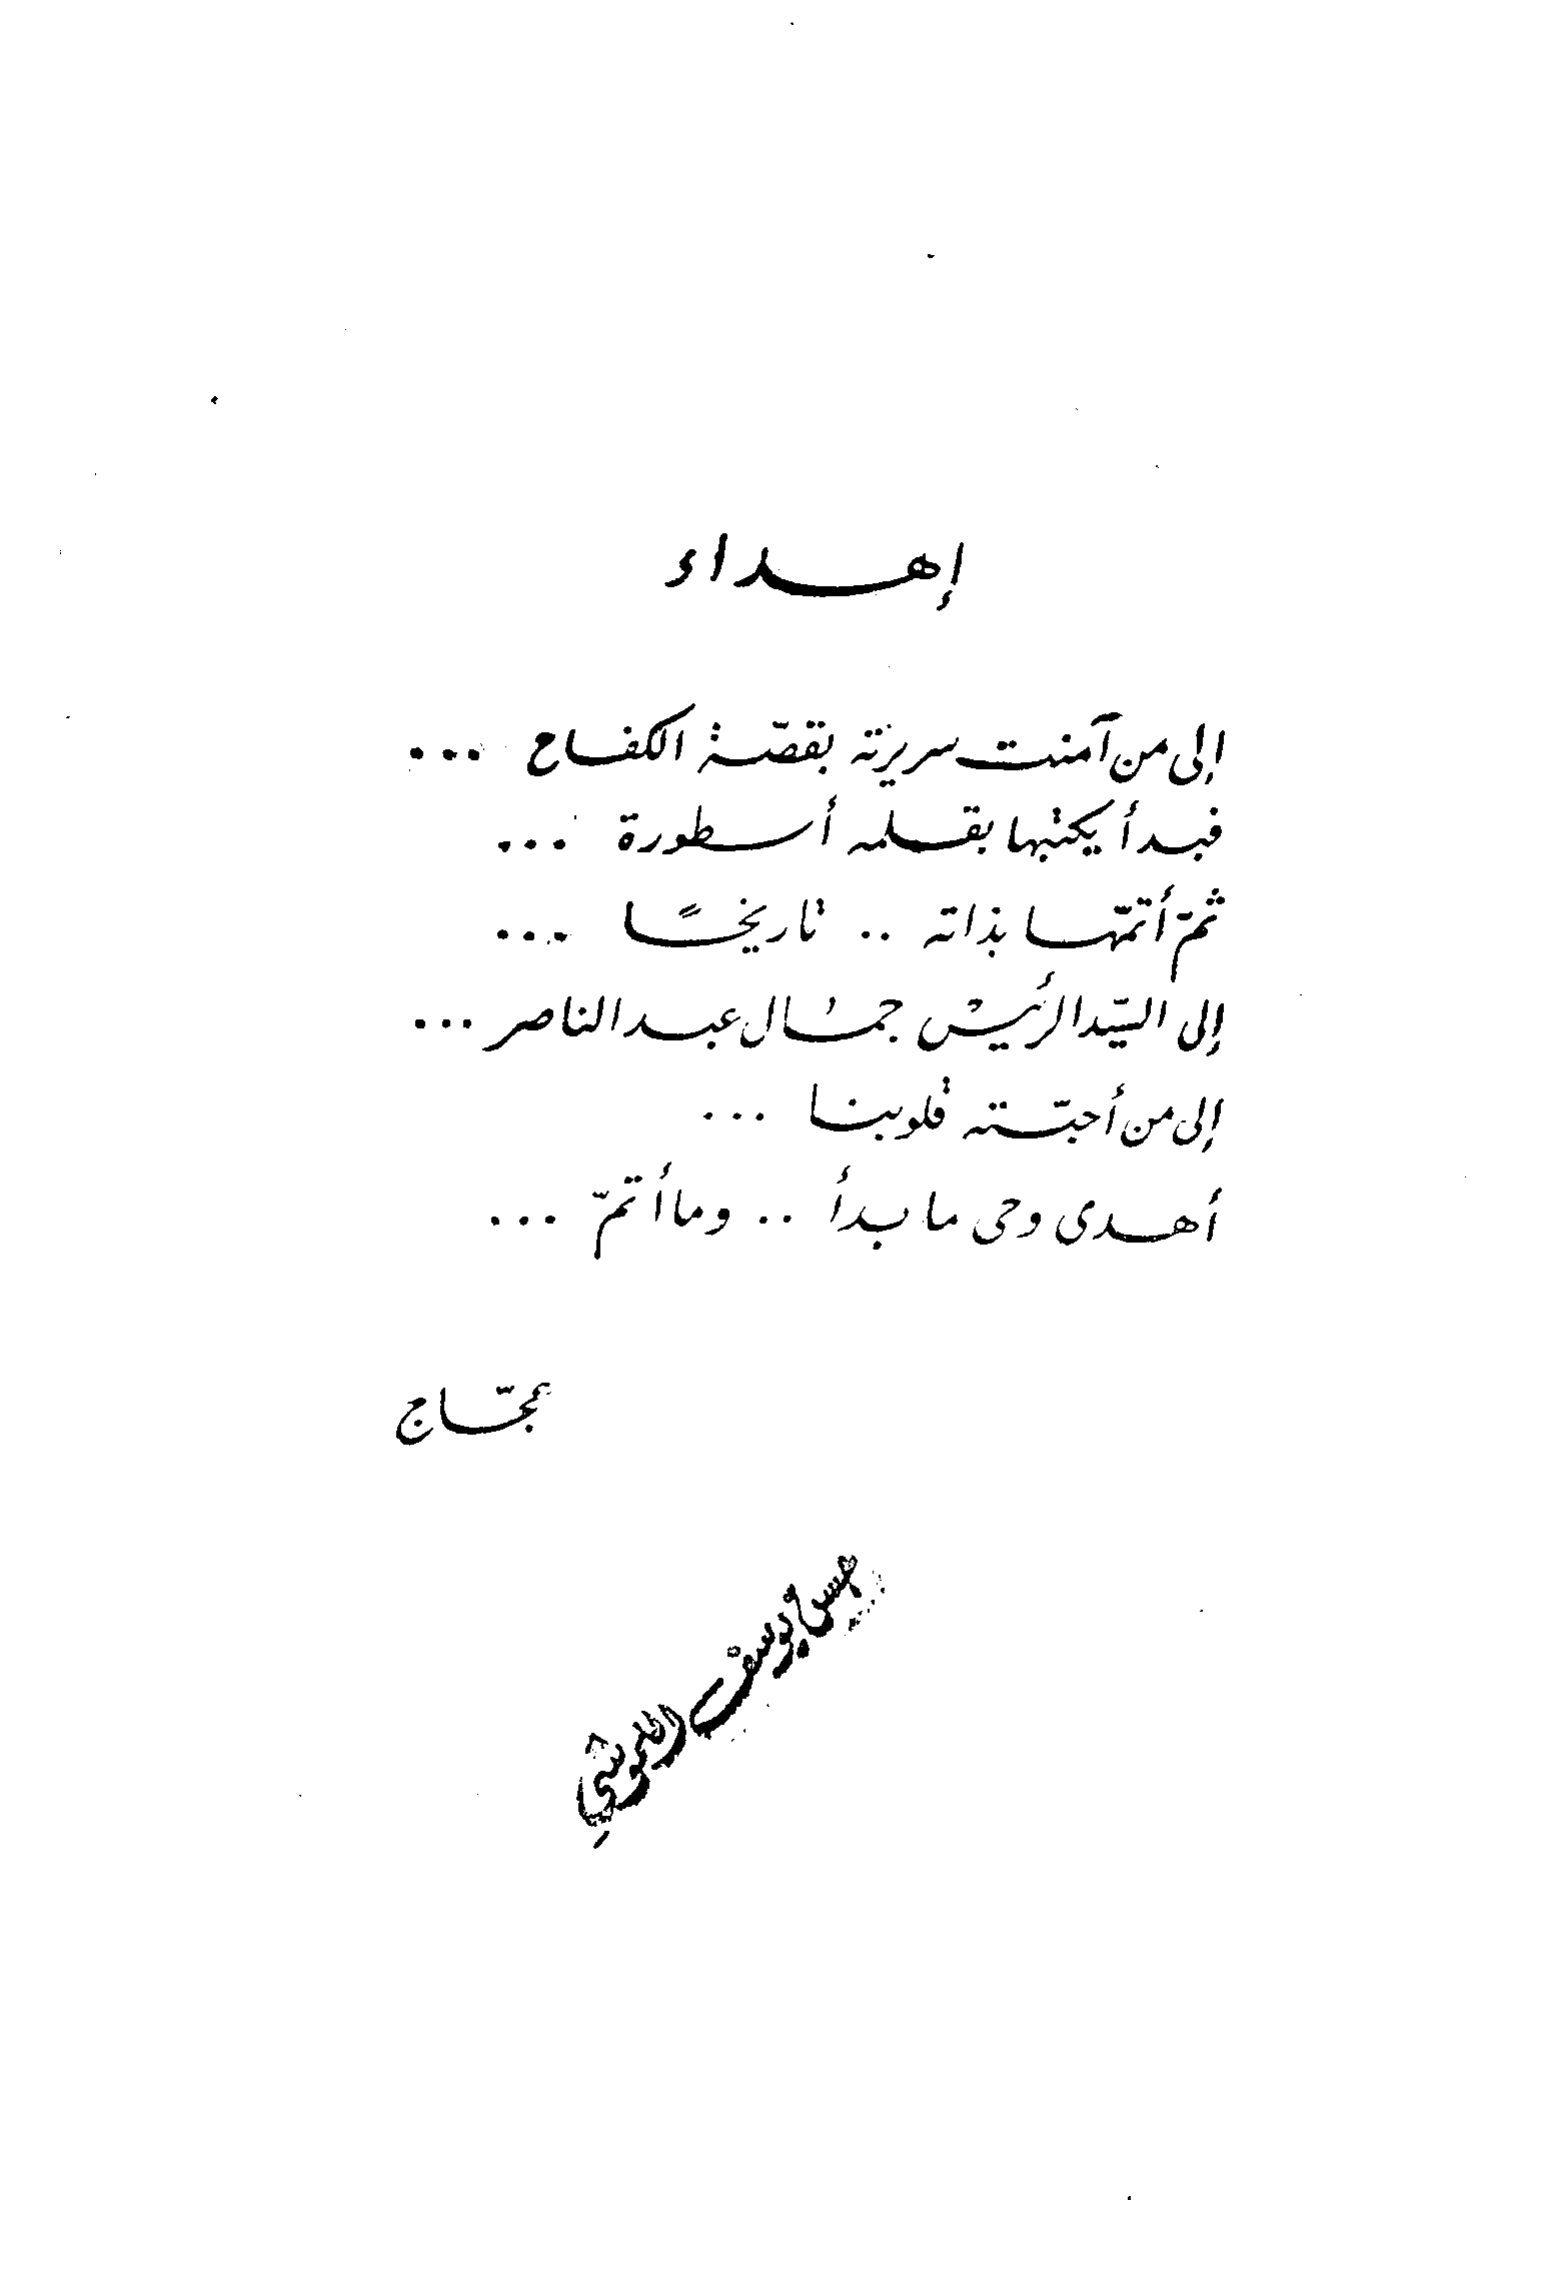 إهداء
إلى من آمنت سريرته بقصّة الكفاح ...
فبدأ يكتبها بقلمه أسطورة ...
ثمّ أتمّها بذاته .. تاريخًا ...
إلى السيّد الرئيس جمال عبد الناصر ...
إلى من أحبّته قلوبنا ...
أهدى وحى ما بدأ .. وما أتمّ ...
عجّاج
يوسف